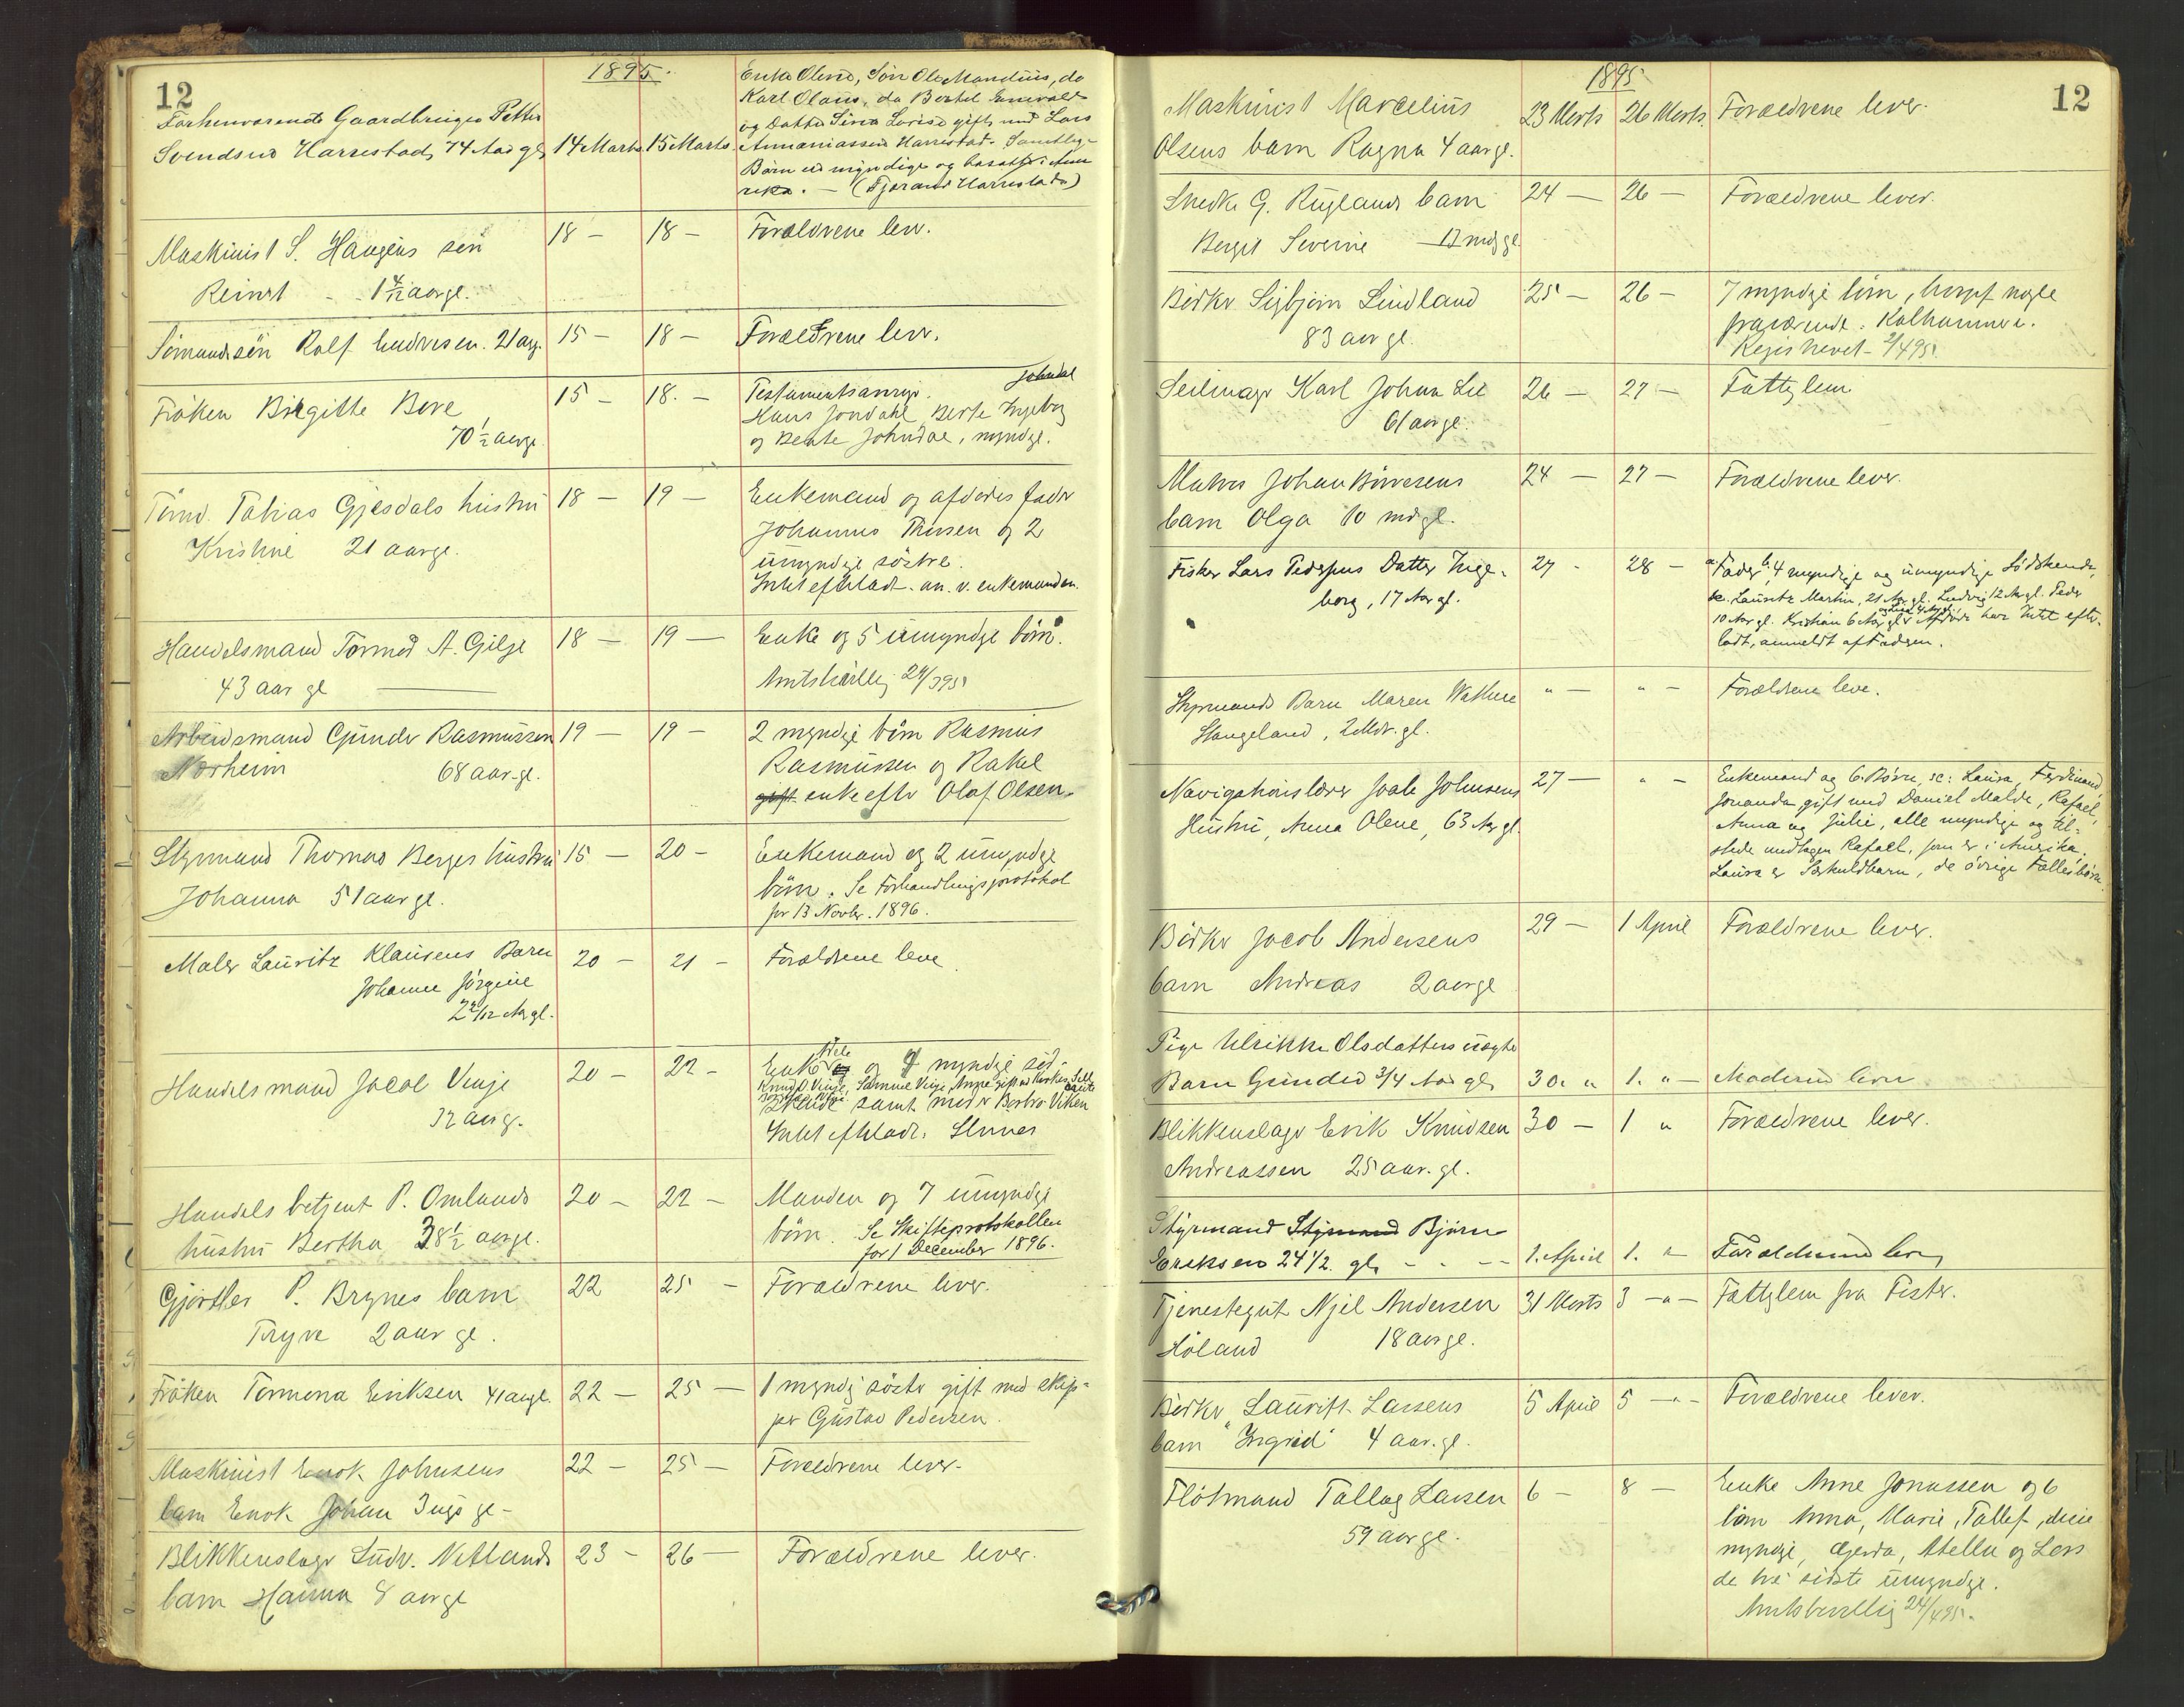 12
1895.
Forhenværende Gaardbruger Petter
Svendsen Harrestad, 74 Aar gl.
14 Marts
15 Marts
Enke Olene, Søn Ole Mandius, do
Karl Olaus, do Bertel Enevald
og Datter Sina Lovise gift med Lars
Annaniassen Harrestad. Samtlige
Børn er myndige og bosatte i Ame
rika. — (Tjørand Harrestad)
Maskinist S. Haugens søn
Reinert - 1 4/12 aar gl.
18 —
18 —
Forældrene lever.
Sømandssøn Rolf Endresen. 21 aar g.
15 —
18 —
Forældrene lever.
Frøken Birgitte Bore
70 1/2 aar gl.
15 —
18. —
Testamentsarving.
Johndal
Hans Jondahl, Berte Ingeborg
og Beate Johndal, myndge.
Tømd. Tobias Gjesdals hustru
Kristine 21 aar gl.
18 —
19 —
Enkemand og afdødes fader
Johannes Thusen og 2
umyndige søstre.
Intet efterladt. an. v. enkemanden.
Handelsmand Tormod A. Gilje
43 aar gl
18 —
19 —
Enke og 5 umyndige børn.
Amtsbevillig 29/3 95
Arbeidsmand Gunder Rasmussen
Norheim 68 aar gl.
19 —
19 —
2 myndige børn Rasmus
Rasmussen og Rakel
gift enke efter Olaf Olsen.
Styrmand Thomas Berges hustru
Johanna 51 aar gl.
15 —
20 —
Enkemand og 2 umyndige
børn. Se Forhandlingsprotokol
for 13 Novbr. 1896.
Maler Lauritz Klausens Barn
Johanne Jørgine
2 2/12 Aar gl.
20 —
21 —
Forældrene leve
Handelsmand Jacob Vinje
32 aar g.
20 —
22 —
Enke og 4 myndige sød-
skende samt moder Berbro Viken
Intet efterladt.
Handelsbetjent P. Omlands
hustru Bertha 38 1/2 aar gl.
20 —
22 —
Manden og 7 umyndige
børn. Se Skifteprotokollen
for 1 December 1896.
Gjørtler P. Brynes barn
Tryve 2 aar gl.
22
25 —
Forældrene lever.
Frøken Tormena Eriksen 41 aar gl.
22 —
25 —
1 myndig søster gift med skip-
per Gustav Pedersen.
Maskinist Enok Johnsens
barn Enok Johan 3 uger gl —
22 —
25 —
Forældrene lever.
Blikkenslager Ludv. Netlands
barn Hanna 8 aar gl
23 —
26 —
Forældrene lever.
1895
12
Maskinist Marcelius
Olsens barn Ragna 4 aar gl.
23 Marts
26 Marts.
Forældrene lever.
Snedker G. Ruglands barn
Berget Severine — 17 mdr gl.
24 —
26 —
Forældrene lever.
Bødker Sigbjørn Lindland
83 aar gl.
25 —
26 —
7 myndige børn, hvoraf nogle
fraværende. Kalhammeren.
Registreret 2/4 95.
Seilmager Karl Johan Lie
61 aar gl.
26 —
27 —
Fattiglem
Murer Johan Børresens
barn Olga 10 mdr gl.
24 —
27 —
Forældrene lever.
Fisker Lars Pedersens Datter Inge-
borg, 17 Aar gl.
27 -
28 —
a Fader, b, 4 myndige og umyndige Sødskende,
sc. Lauritz Martin, 21 Aar gl. Ludvig 12 Aar gl. Peder
10 Aar gl. Kristian 6 Aar gl. Afdøde har Intet efter-
ladt, anmeldt af Faderen.
Styrmands Barn Maren Wathne
Stangeland, 2 Mdr. gl.
" —
" —
Forældrene leve.
Navigationslærer Joale Johnsens
Hustru, Anna Olene, 63 Aar gl.
27 —
" —
Enkemand og 6 Børn, sc: Laura, Ferdinand,
Jonanda gift med Daniel Malde, Rafael,
Anna og Julie, alle myndige og til-
stede undtagen Rafael, som er i Amerika.
Laura er Særkuldbarn, de øvrige Fællesbørn.
Bødker Jacob Andersens
barn Andreas 2 aar gl
29 —
1 April
Forældrene lever.
Pige Ulrikke Olsdatters uægte
Barn Gunder 3/4 Aar gl.
30. "
1. " —
Moderen lever
Blikkenslager Erik Knudsen
Andreassen 25 aar. gl.
30 —
1 "
Forældrene lever.
Styrmand Styrmand Bjørn
Eriksen 24 1/2. gl. - - - -
1. April
1. "
Forældrene lever
Tjenestegut Njel Andersen
Høland 18 aar gl.
31 Marts
3 — " —
Fattiglem fra Fister.
Bødker Laurits Larsens
barn "Ingrid" 4 aar. gl.
5 April
5 — " -
Forældrene lever.
Fløtmand Tallag Larsen
59 aar gl.
6 —
8 —
Enke Anne Jonassen og 6
børn Anna, Marie, Tallef, disse
myndige, Gjerda, Atella og Lars
de tre sidste umyndige.
Amtsbevillig 24/4 95.